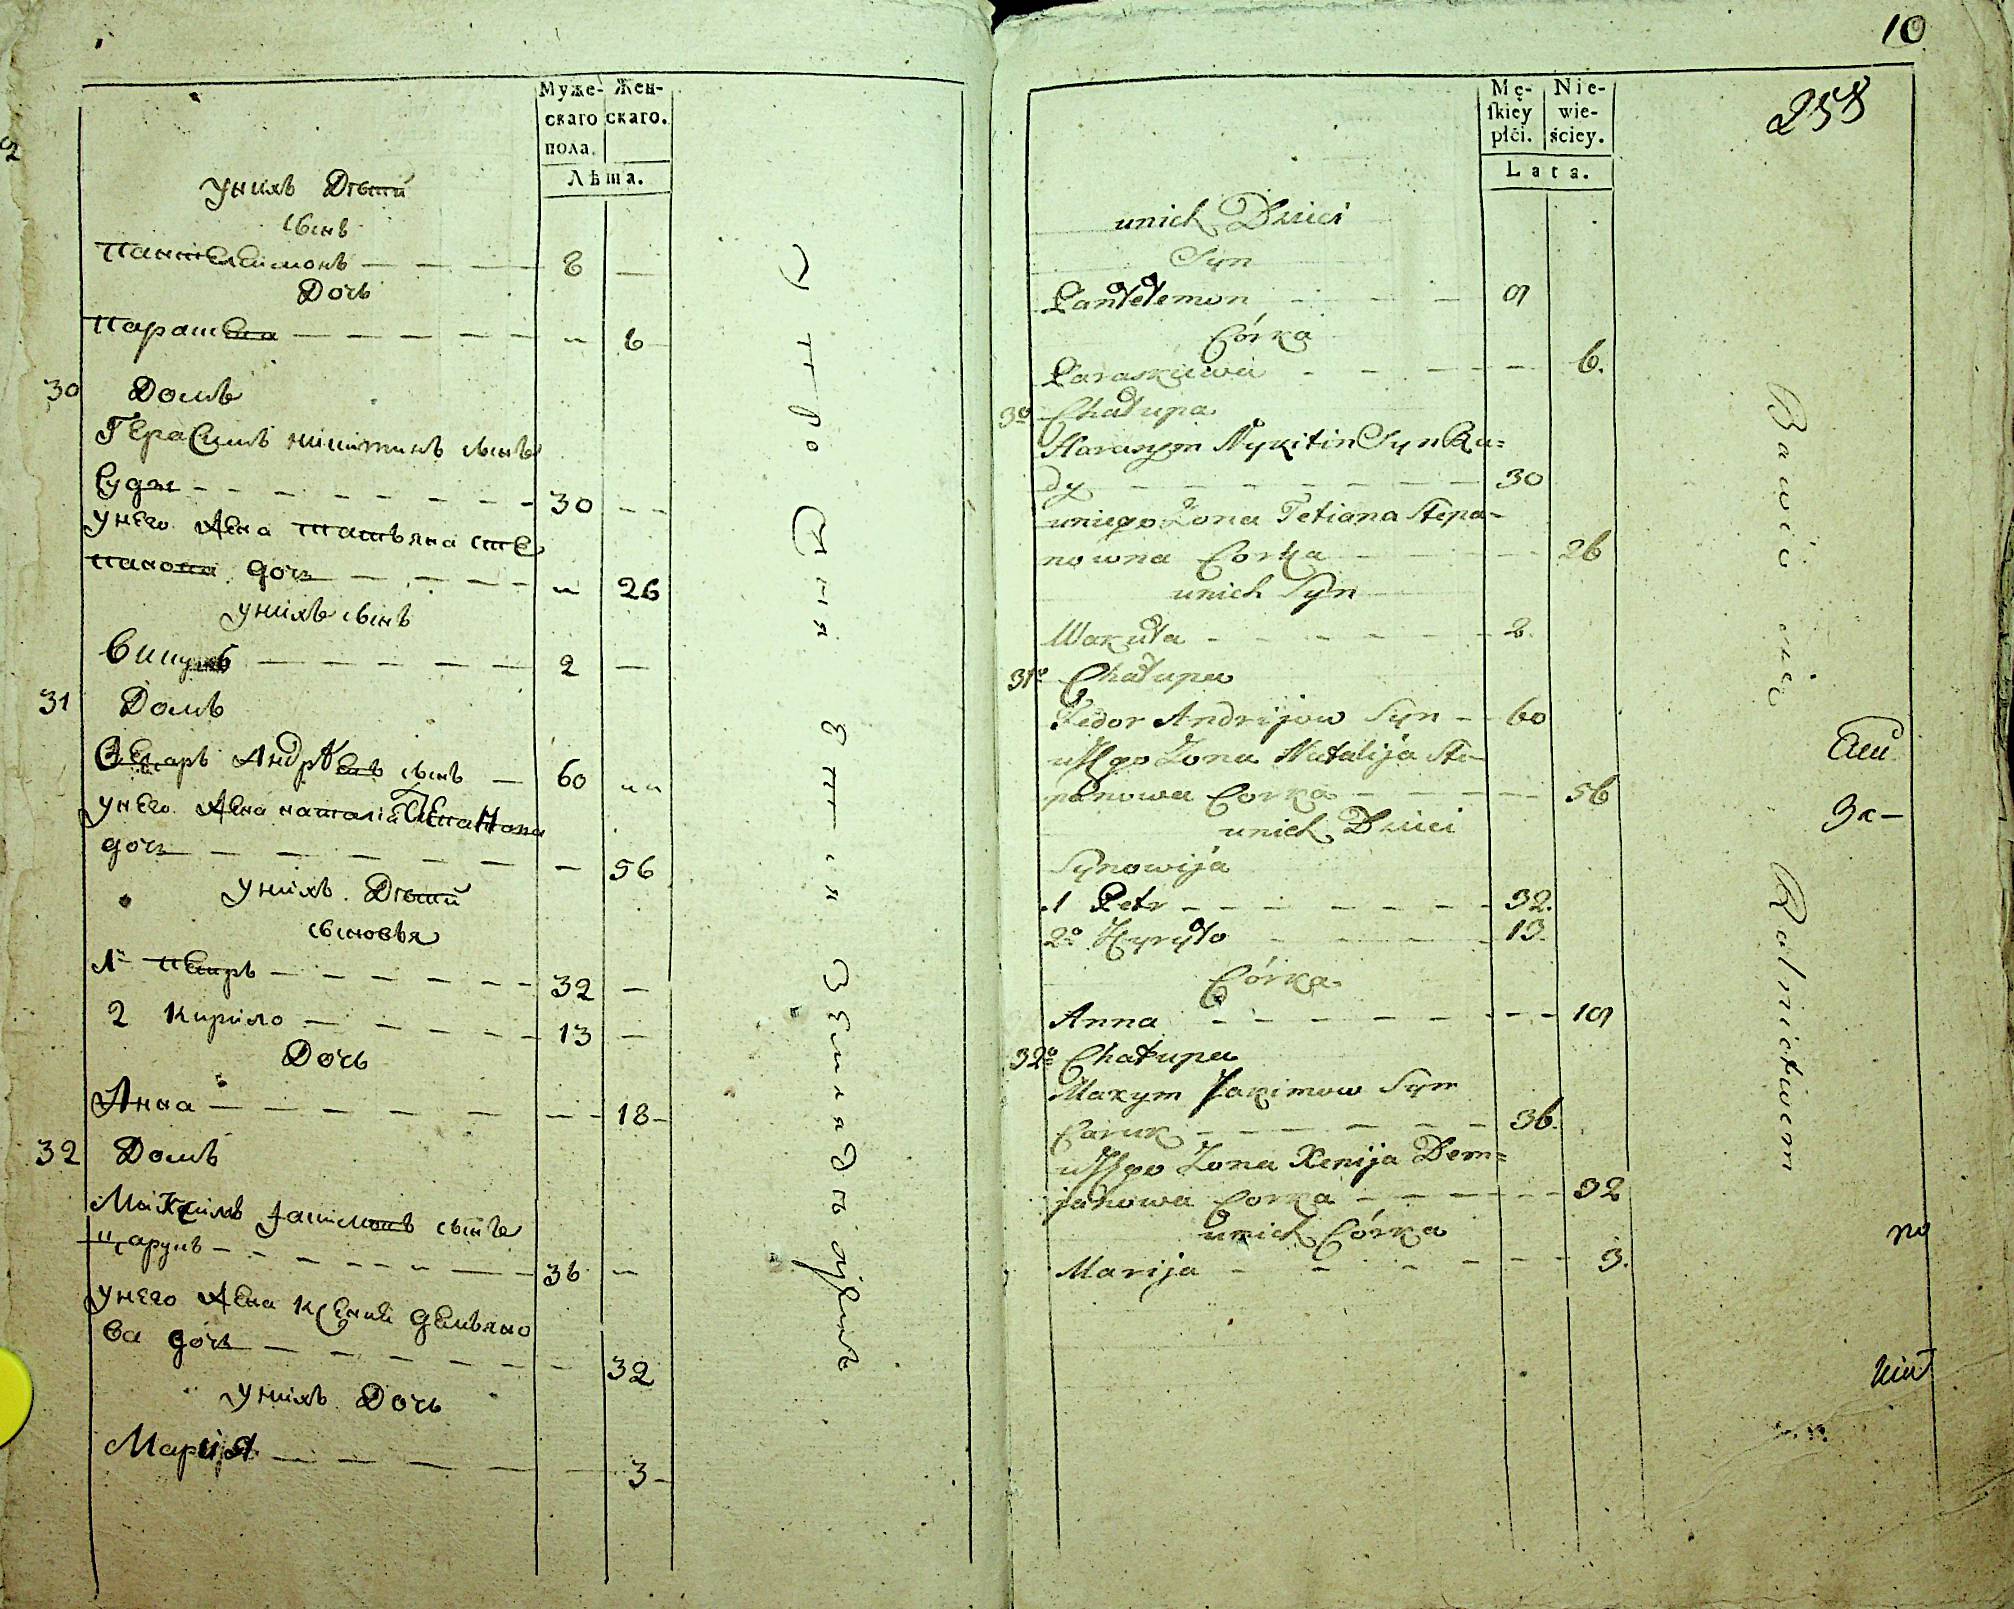 Муже- Жен-
скаго скаго.
пола.
Лѣта.
унихъ Дѣтей
сынъ
Пантелеимонъ — — — 8 —
Дочь
Параскева — — — — — „ 6
30 Домъ
Герасимъ никитинъ сынъ
Руды - - - - - - - 30 - -
унего жена татьяна сте
панова дочь — — — — „ 26
унихъ сынъ
— — — — — 2 —
31 Домъ
Андрѣевъ сынъ — 60 „ „
унего жена наталiя Степанова
дочь — — — — — — — 56
унихъ Дѣтей
сыновья
1й Петръ - - - - - - 32 —
2 Кирило — - - - - - 13 —
Дочь
Анна — — — — — — - - 18 -
32 Домъ
Максимъ Iакимовъ сынъ
Царукъ - - - - - - — - 36 —
унего жена Ксенiя демьяно
ва дочь — — — — — — 32
унихъ Дочь
Марiя — — — — — 3 -
10
258
Mę- Nie-
skiey wie-
płći. ściey.
Lata.
unich Dzieci
Syn
Pantełemon - - - - 9
Córka
Paraskiewa - - - - - 6.
30 Chałupa
Harasym Nykitin Syn Ru=
dy — — — — — — — 30
uniego Żona Tetiana Stepa-
nowna Corka - - - - - 26
unich Syn
Wakuła - - - - - - 2.
31º Chałupa
Fedor Andrijow Syn — 60
Żona Natalija Ste-
panowa Corka - - - - - 56
unich Dzieci
Synowija
1 Petr - - - - - - - 32.
2º Kyryło - - - - - 13.
Córka
Anna - - - - - - - - - 19
32º Chałupa
Maxym Jakimow Syn
Caruk - - - - - - - 36.
Żona Xenija Dem=
janowa Corka - - - - - - 32
unich Córka
Marija - - - - - - - 3.
Bawio się Rolnictwem